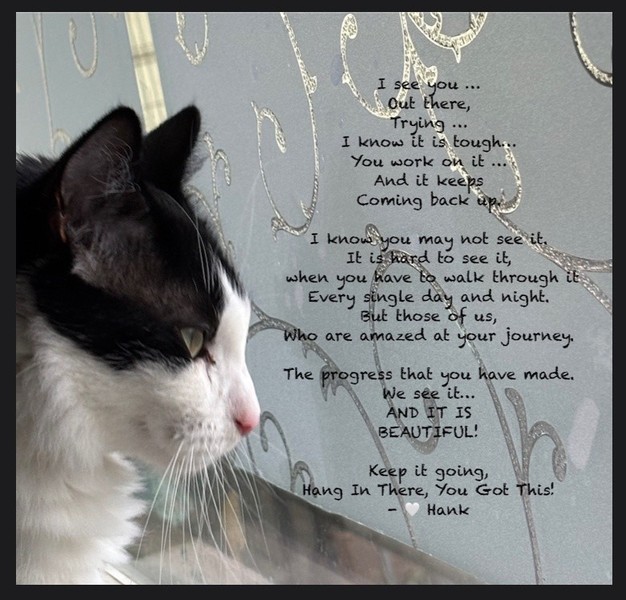 I see you ...
Out there,
Trying ...
I know it is tough...
You work on it ...
And it keeps
Coming back up.
I know you may not see it.
It is hard to see it,
when you have to walk through it
Every single day and night.
But those of us,
Who are amazed at your journey.
The progress that you have made.
We see it...
AND IT IS
BEAUTIFUL!
Keep it going,
Hang In There, You Got This!
- 🤍 Hank